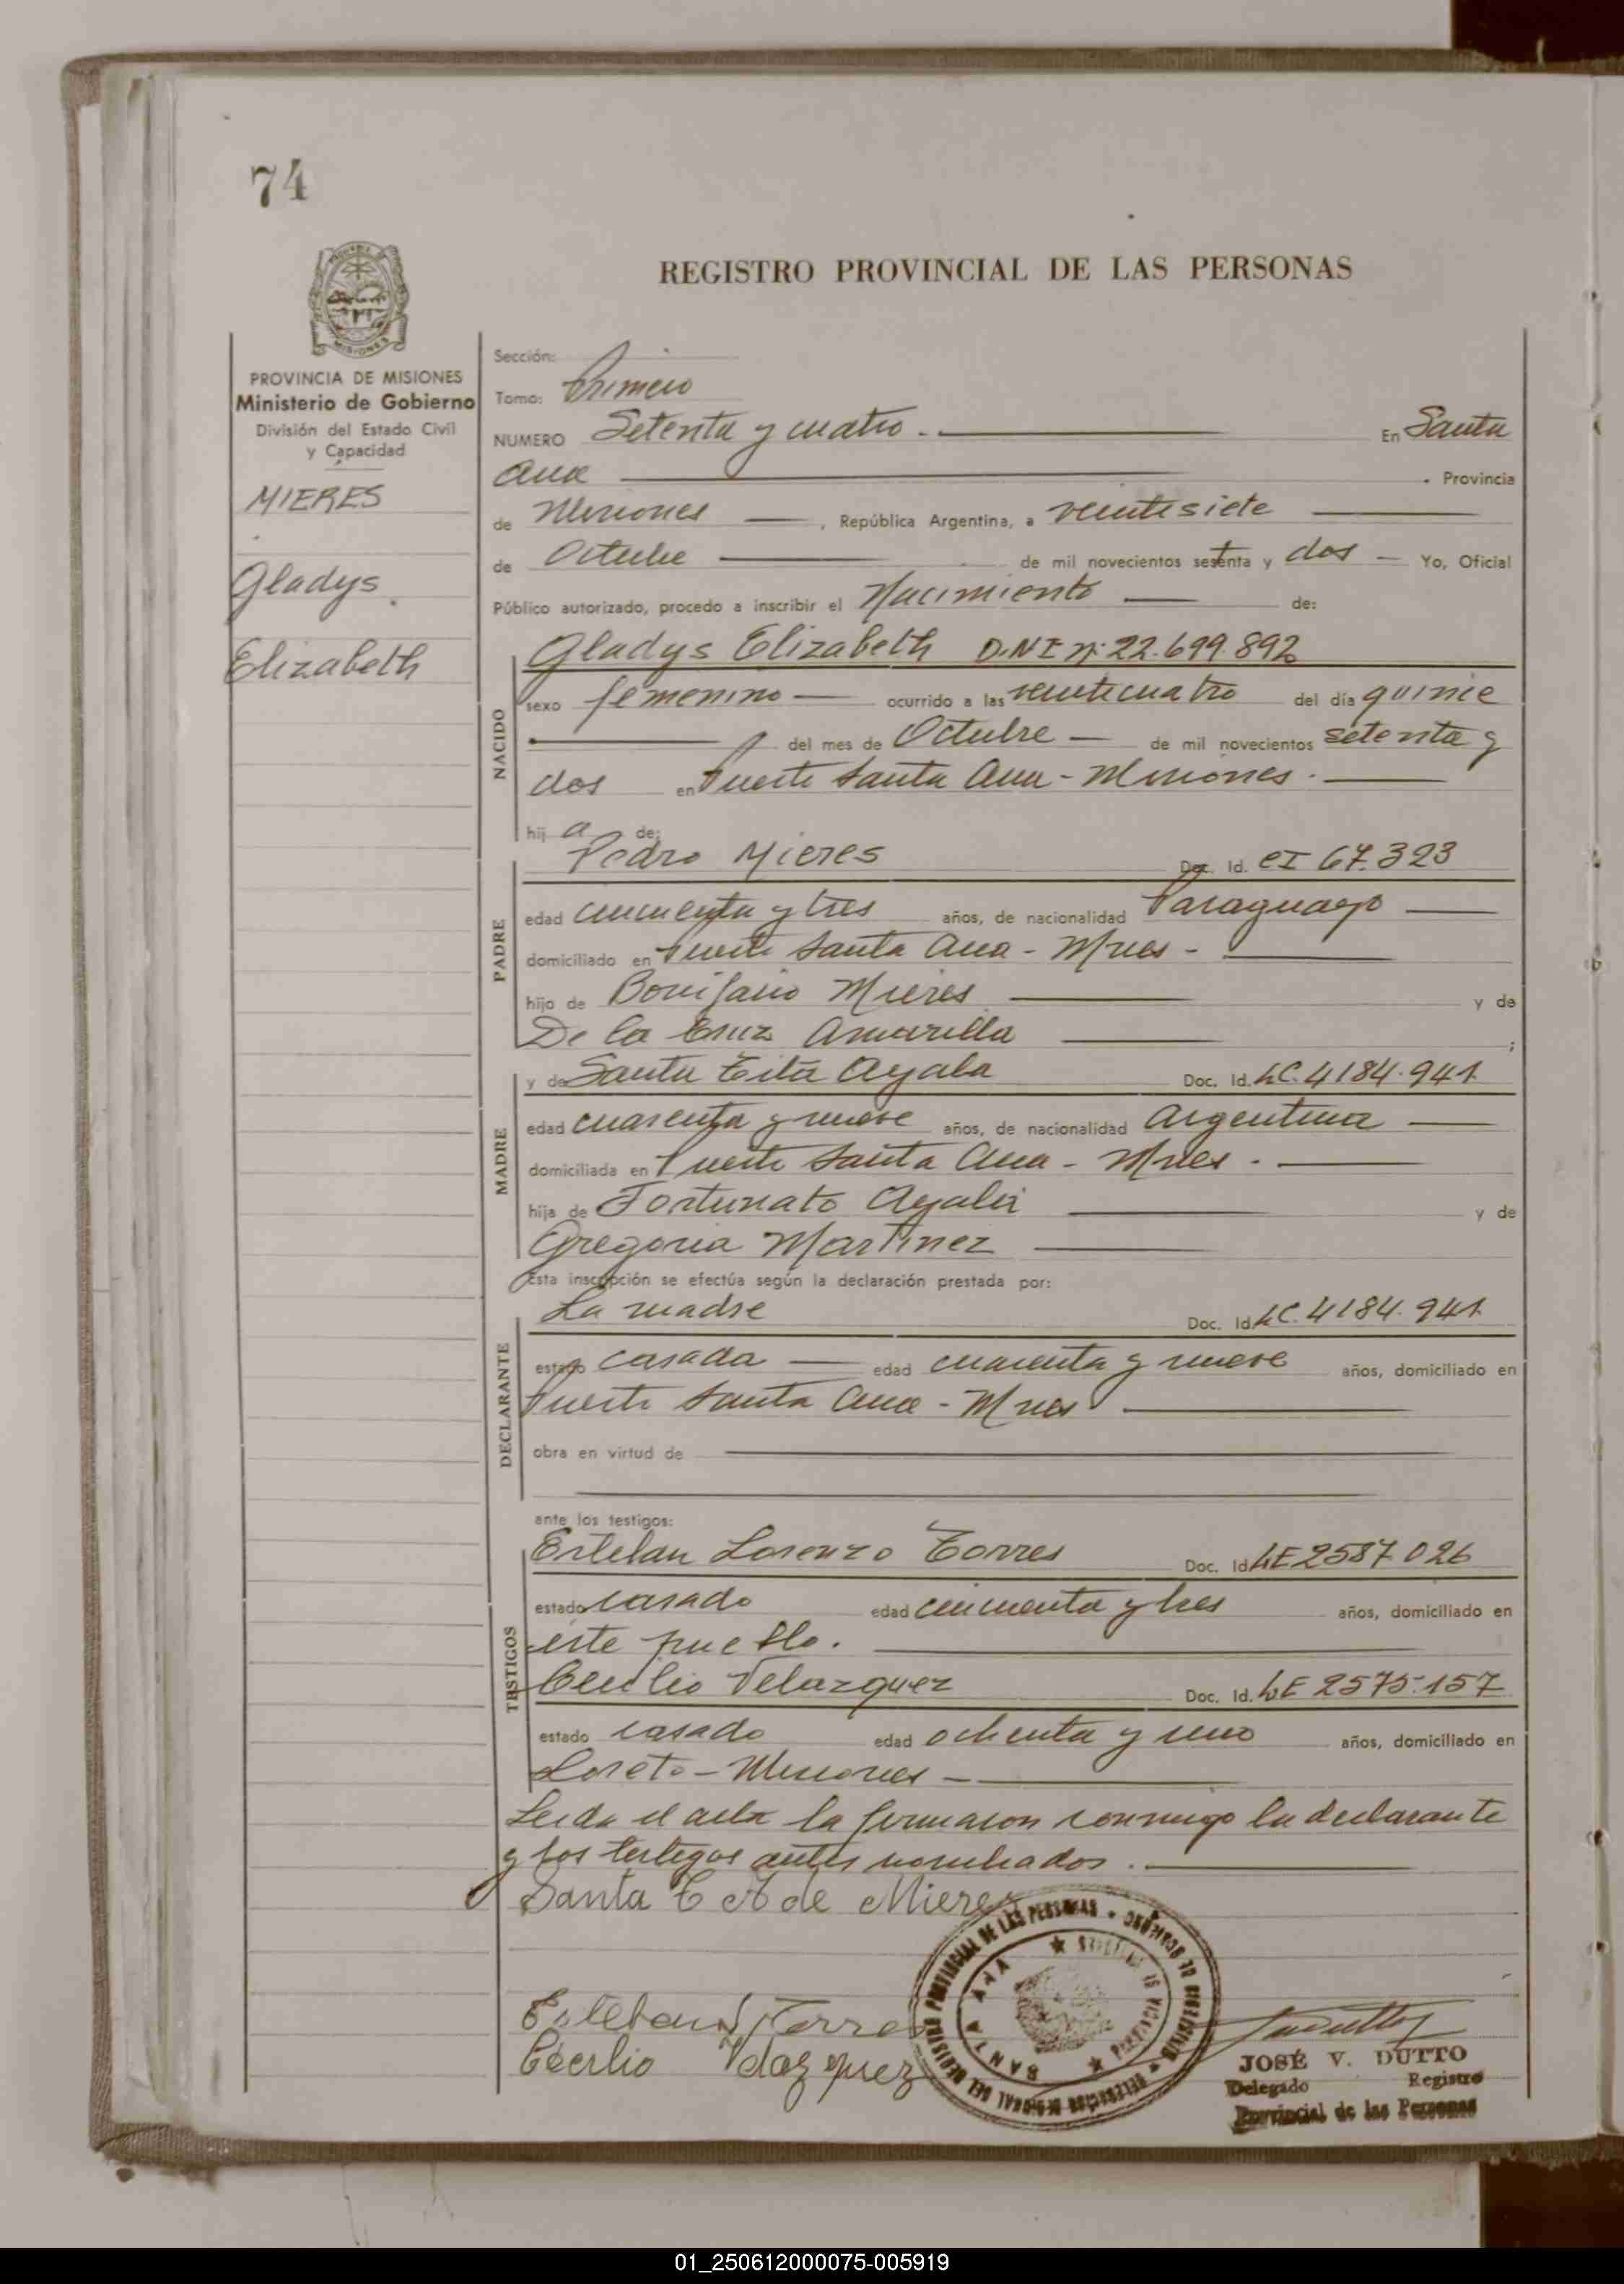 74
REGISTRO PROVINCIAL DE LAS PERSONAS
MISIONES
PROVINCIA DE MISIONES
Ministerio de Gobierno
División del Estado Civil
y Capacidad
MIERES
Gladys
Elizabeth
Sección:
Tomo: Primero
NUMERO Setenta y cuatro.- En Santa
Ana . Provincia
de Misiones , República Argentina, a veintisiete
de Octubre de mil novecientos setenta y dos Yo, Oficial
Público autorizado, procedo a inscribir el Nacimiento de:
NACIDO
Gladys Elizabeth D.N.I nº: 22.699.892
sexo femenino ocurrido a las veinticuatro del día quince
del mes de Octubre de mil novecientos setenta y
dos en Puerto Santa Ana - Misiones.
hij a de:
PADRE
Pedro Mieres Doc. Id. CI 67.323
edad cincuenta y tres años, de nacionalidad Paraguayo
domiciliado en Puerto Santa Ana - Mnes -
hijo de Bonifacio Mieres y de
De la Cruz Amarilla ;
MADRE
y de Santa Tita Ayala Doc. Id. LC. 4184.941
edad cuarenta y nueve años, de nacionalidad Argentina
domiciliada en Puerto Santa Ana - Mnes.
hija de Fortunato Ayala y de
Gregoria Martinez
Esta inscripción se efectúa según la declaración prestada por:
DECLARANTE
La madre Doc. Id. LC. 4184.941
estado casada edad cuarenta y nueve años, domiciliado en
Puerto Santa Ana - Mnes
obra en virtud de
TESTIGOS
ante los testigos:
Esteban Lorenzo Torres Doc. Id. LE 2587026
estado casado edad cincuenta y tres años, domiciliado en
este pueblo.
Cecilio Velazquez Doc. Id. LE 2575.157
estado casado edad ochenta y uno años, domiciliado en
Loreto - Misiones -
Leida el acta la firmaron conmigo la declarante
y los testigos antes nombrados.
Santa T A de Mieres
Esteban L Torres
Cecilio Velazquez
SANTA ANA
PROVINCIA DE MISIONES
JOSÉ V. DUTTO
Delegado Registro
Provincial de las Personas
01_250612000075-005919